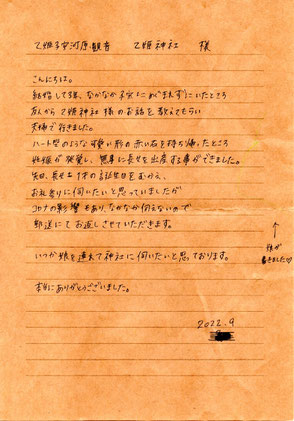 乙姫子安河原観音　乙姫神社　様
こんにちは。
結婚して3年、なかなか子宝にめぐまれずにいたところ
友人から乙姫神社様のお話を教えてもらい
夫婦で行きました。
ハート型のような形の赤い石を持ち帰ったところ
妊娠が発覚し、無事に長女を出産する事ができました。
先日、長女も1才の誕生日をむかえ、
お礼参りに伺いたいと思っていましたが
コロナの影響もあり、なかなか伺えないので
郵送にてお返しさせていただきます。
いつか娘を連れて神社に伺いたいと思っております。
本当にありがとうございました。
↑
娘が
書きました♡
2022.9